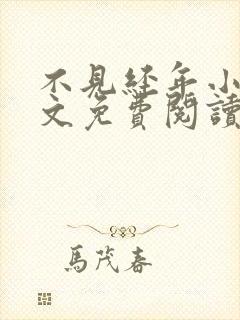 不見經年小
文免費閱讀
馬茂春